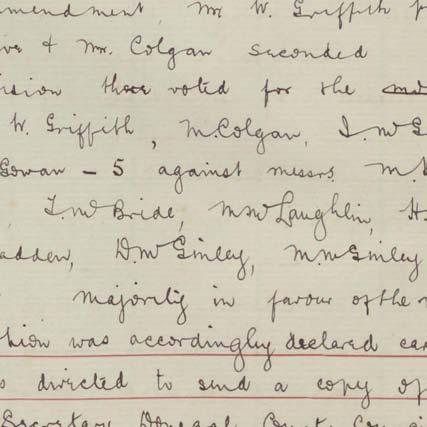 mendment, Mr W. Griffith
& Mr. Colgan seconded
ision those voted for the
W. Griffith, M. Colgan, J. McG
Gowan - 5 against messrs. M.
J. McBride, M McLaughlin, H
adden, D. McGinley, M. McGinley
majority in favour of the
tion was accordingly declared car
s directed to send a copy of
Secretary Donegal County Coun